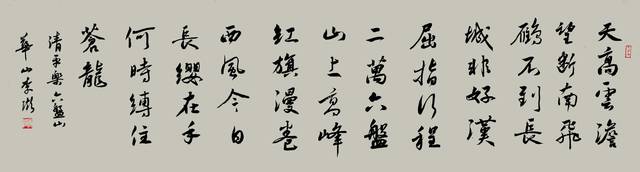 天高雲澹
望断南飛
鴈不到長
城非好漢
屈指行程
二萬六盤
山上高峰
红旗漫卷
西風今日
長纓在手
何時縛住
蒼龍
清平樂六盤山
華山李